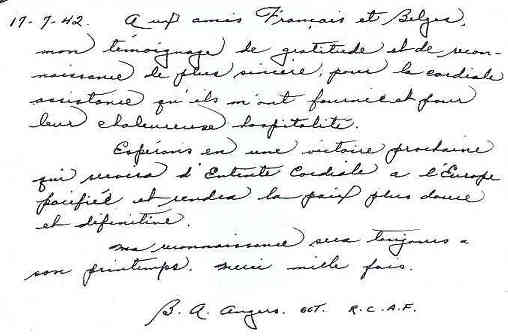 17-7-42. Aux amis Français et Belges,
mon témoignage de gratitude et de recon-
naissance de plus sincère, pour la cordiale
assistance qu'ils m'ont fournie et pour
leur chaleureuse hospitalité.
Espérons en une victoire prochaine
qui verra d'Entente Cordiale a l'Europe
pacifiée et rendra la paix plus douce
et définitive.
Ma reconnaissance sera toujours a
son printemps. Merci mille fois.
B. A. Angers. SGT. R.C.A.F.